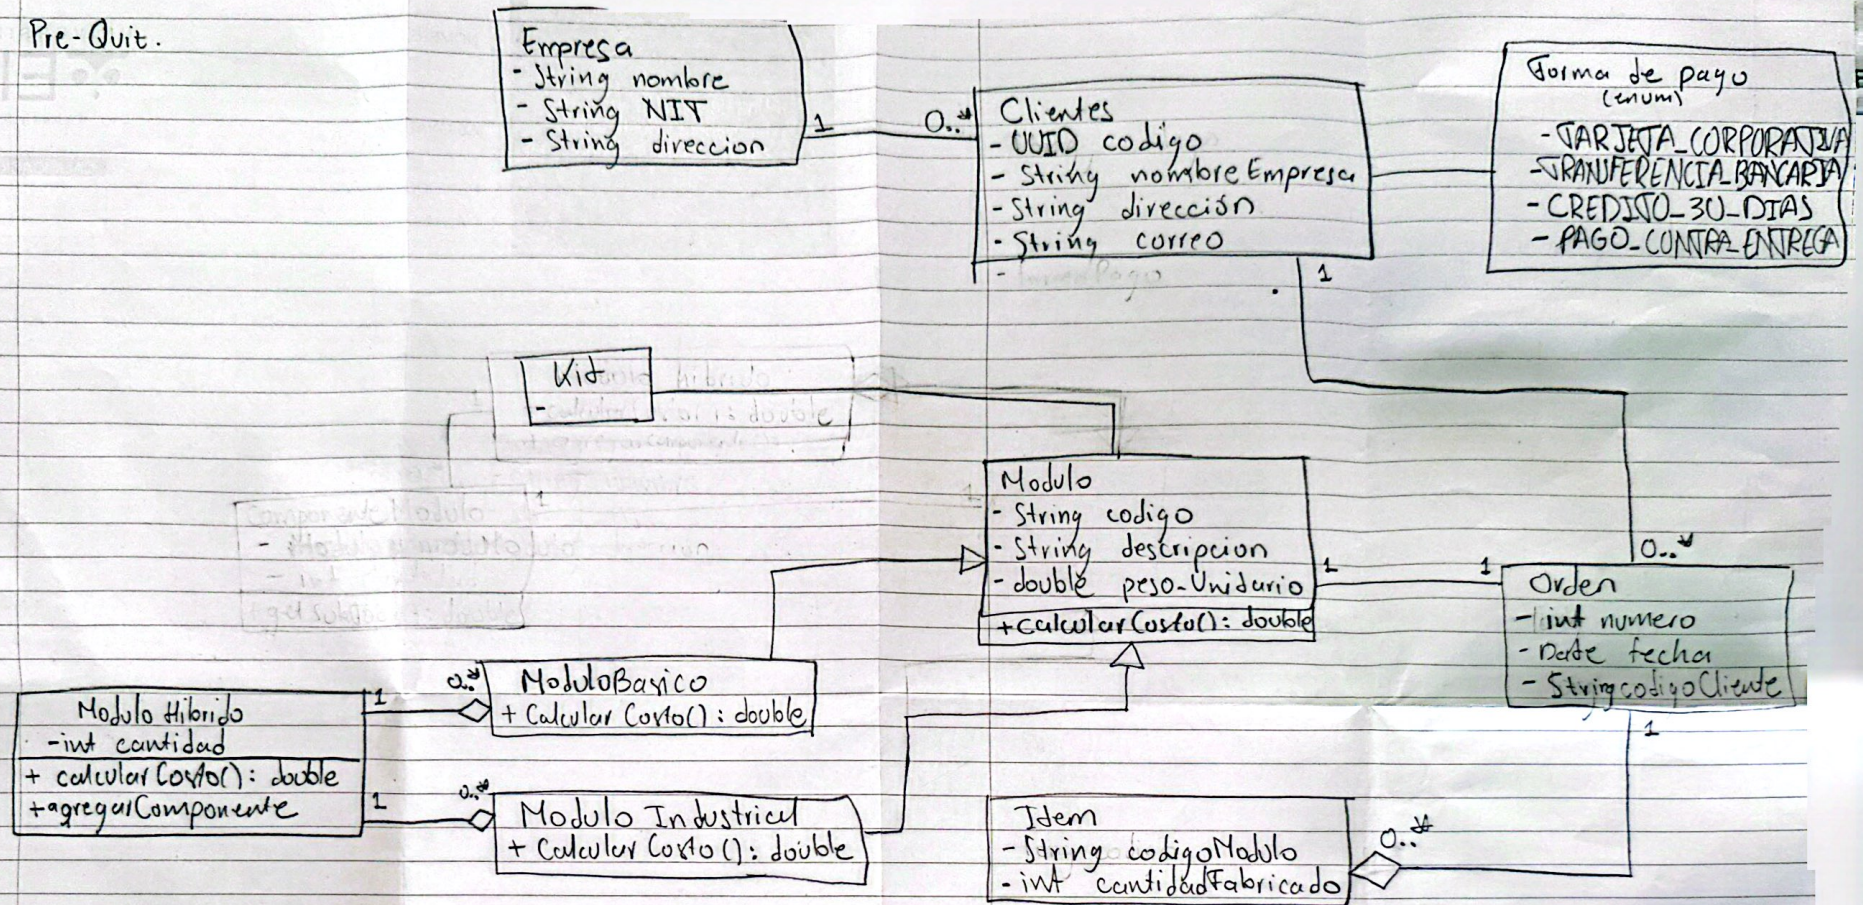 Pre-Quit.
Empresa
- String nombre
- String NIT
- String direccion
1
0..*
Clientes
- UUID codigo
- String nombreEmpresa
- String dirección
- String correo
-
1
Forma de pago
(enum)
- TARJETA_CORPORATIVA
- TRANSFERENCIA_BANCARIA
- CREDITO_30_DIAS
- PAGO_CONTRA_ENTREGA
Kit
-
Modulo
- String codigo
- String descripcion
- double peso_Unitario
+ calcularCosto(): double
1
1
0..*
Orden
- int numero
- Date fecha
- String codigoCliente
1
Modulo Hibrido
- int cantidad
+ calcularCosto(): double
+ agregarComponente
1
0..*
1
0..*
ModuloBasico
+ Calcular Costo(): double
Modulo Industrial
+ Calcular Costo(): double
Item
- String codigoModulo
- int cantidadFabricado
0..*